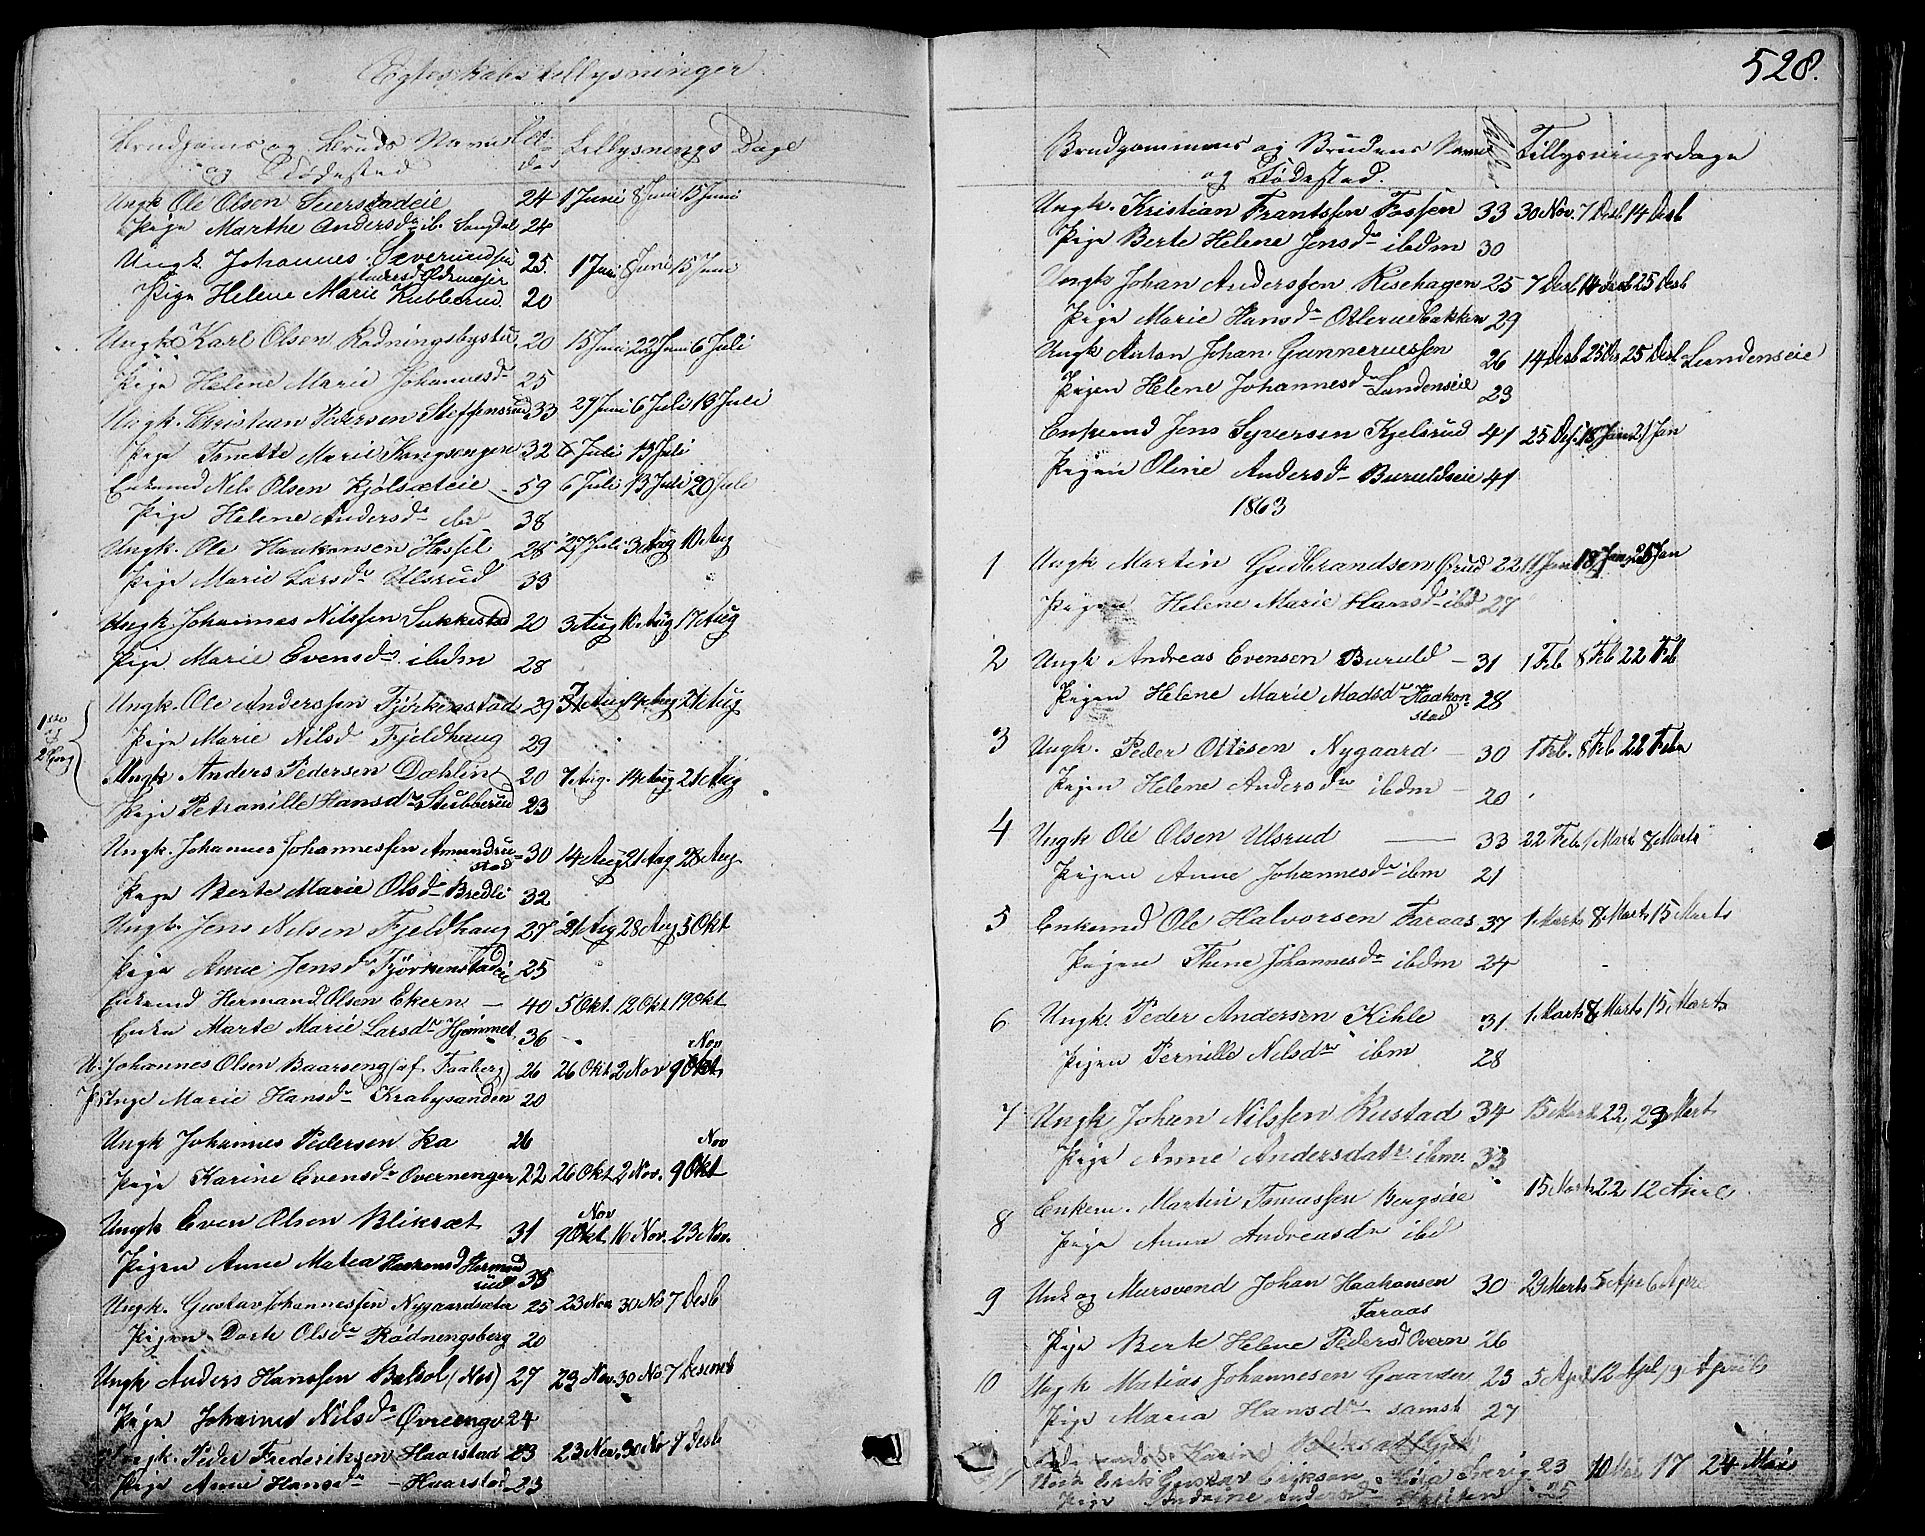 Egteskabstillysninger
Brudgoms og Bruds Navne Tillysnings Dage
og Födested
Ungk Ole Olsen Seierstadeie 24 1 Juni 8 Juni 15 Juni
Pige Marthe Andersdr ib. 24
Ungk. Johannes 25. 1 Juni 8 Juni 15 Juni
Pige Helene Marie Kubberud 20
Ungk Karl Olsen Rödningsbystu 20 15 Juni 22 Juni 6 Juli
Pige Helene Marie Johannesdr 25
Ungk. Christian Pedersen Steffensrud 33 29 Juni 6 Juli 13 Juli
Pige Tonette Marie 32 6 Juli 13 Juli
Enkemd Nils Olsen Kjölsæteie 59 6 Juli 13 Juli 20 Juli
Pige Helene Andersdr 38
Ungk. Ole Haakonsen Hassel 28 27 Juli 3 Aug 10 Aug
Pige Marie Larsdr Ulsrud 33
Ungk. Johannes Nilssen Sukkestad 20 3 Aug 10 Aug 17 Aug
Pige Marie Evensdr ibdm 28
Ungk. Ole Anderssen Tjörkenstad 29 7 Aug 14 Aug 21 Aug
1ste og 2 Gang
Pige Marie Nilsd Fjeldhaug 29
Ungk Anders Pedersen Dæhlin 20 7 Aug. 14 Aug 21 Aug
Pige Petronille Hansdr Stubberud 23
Ungk. Johannes Johannessen Amundrustad 30 14 Aug 21 Aug 28 Aug
Pige Berte Marie Olsdr Bredli 32
Ungk. Jens Nilsen Fjeldhaug 27 21 Aug 28 Aug 5 Okt
Pige Anne Jensdr Tjörkenstadeie 25
Enkemd Hermand Olsen Ekern 40 5 Okt. 12 Okt 19 Okt
Enke Marte Marie Larsdr Hjemmet 36
U. Johannes Olsen Baarseng (af Faaberg) 26 26 Okt 2 Nov 9 Okt Nov
P. Inge Marie Hansdr Krabysanden 20
Ungk Johannes Pedersen Ka 26
Pige Karine Evensdr Overnenger 22 26 Okt 2 Nov. 9 Okt Nov
Ungk Even Olsen Bliksæt 31 9 Okt Nov 16 Nov. 23 Nov.
Pigen Anne Matea 35
Ungk. Gustav Johannessen Nygaardsæter 25 23 Nov 30 No 7 Desb
Pigen Dorte Olsdr Rödningsberg 20
Ungk Anders Hanssen Balsol (Nes) 27 23 Nov. 30 No 7 Desemb
Pige Johanne Nilsdr Øvreenge 24
Ungk. Peder Frederiksen Haarstad 23 23 Nov. 30 No 7 Desb
Pige Anne Hansdr Haarstad 23
528.
Brudgommens og Brudens Navne Alder Tillysningsdage
og Födestad.
Ungk. Kristian Frantssen Fossen 33 30 Nov. 7 Desb 14 Desb
Pige Berte Helene Jensdr ibdm 30
Ungk Johan Anderssen Risehagen 25 7 Desb 14 Desb 25 Desb
Pige Marie Hansdr Osleruebakken 29
Ungk Anton Johan Gunnerussen 26 14 Desb 25 Des 25 Desb Lundenseie
Pigen Helene Johannesdr Lundenseie 23
Enkemd Jens Syversen Kjelsrud 41 25 Des. 18 Jan 21 Jan
Pigen Oline Andersdr Buruldseie 41
1863
1 Ungk Martin Gudbrandsen Ørud 22 11 Jan 18 Jan 25 Jan
Pigen Helene Marie Hansd ibd 27
2 Ungk Andreas Evensen Buruld 31 1 Feb 8 Feb 22 Feb
Pigen Helene Marie Madsdr Haakonstad 28
3 Ungk. Peder Ottesen Nygaard 30 1 Feb. 8 Feb 22 Feb
Pigen Helene Andersdr ibdm 20
4 Ungk Ole Olsen Ulsrud 33 22 Feb. 1 Mart 8 Marts
Pigen Anne Johannesdr ibm 21
5 Enkemd Ole Halvorsen Faraas 37 1 Marts 8 Marts 15 Marts
Pigen Thine Johannesdr ibdm 24
6 Ungk. Peder Andersen Kihle 31 1 Marts 8 Marts 15 Marts
Pigen Pernille Nilsdr ibm 28
7 Ungk Johan Nilssen Rustad 34 15 Marts 22, 29 Mart
Pige Anne Andersdatr ibm. 33
8 Enkem. Martin Tomassen Bergseie 15 Marts 22 12 April
Pige Anna Andreasdr ibd
9 Unk og Mursvend Johan Haakonsen 30 29 Marts 5 Apr 6 Apr
Faraas
Pige Berte Helene Pedersd Overn 26
10 Ungk Matias Johannesen Gaarder 23 5 April 12 Apl 19 April
Pige Maria Hansdr samst 27
Ungk Erik Gustav Erikson 23 10 Mai 17 24 Mai
Pige Andrine Andersdr 25